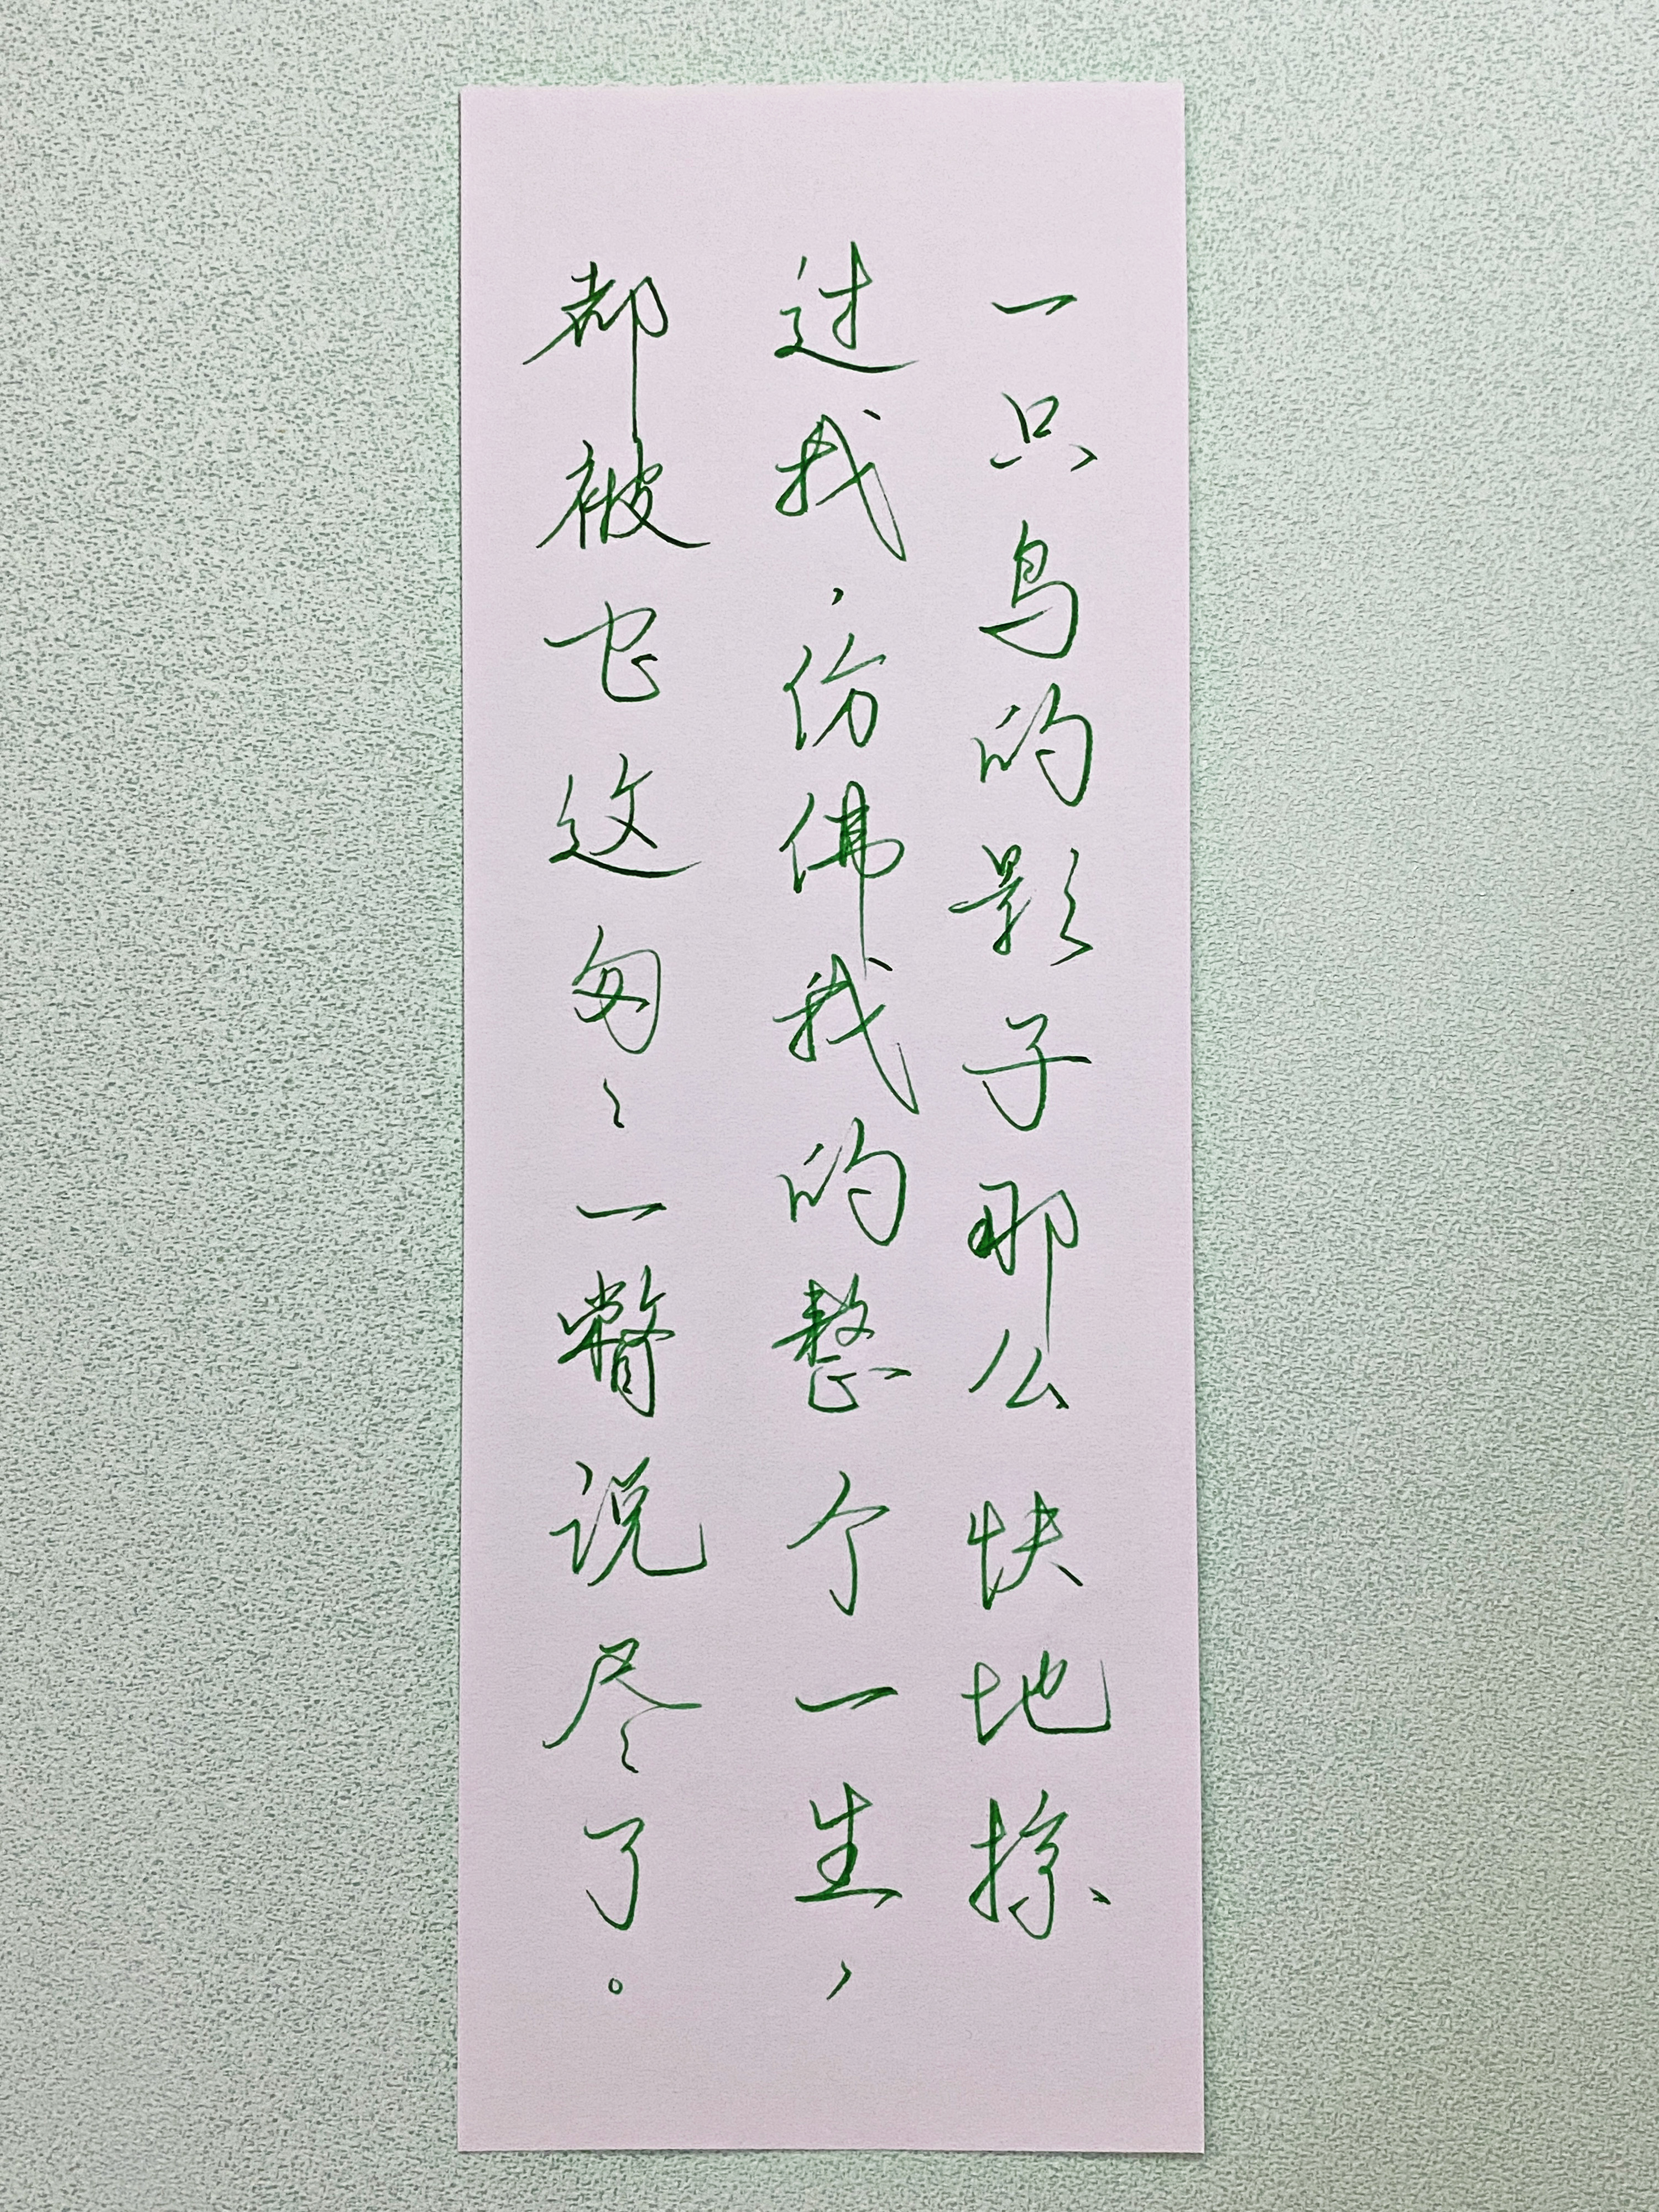 一只鸟的影子那么快地掠
过我，仿佛我的整个一生，
都被它这匆匆一瞥说尽了。